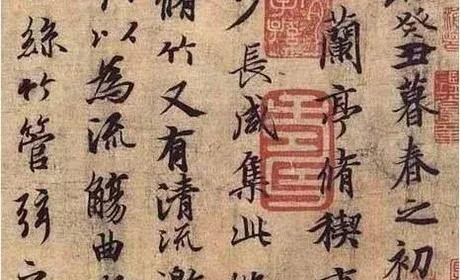 癸丑暮春之初
蘭亭脩禊事
少長咸集此地
脩竹又有清流激
以為流觴曲
絲竹管弦之